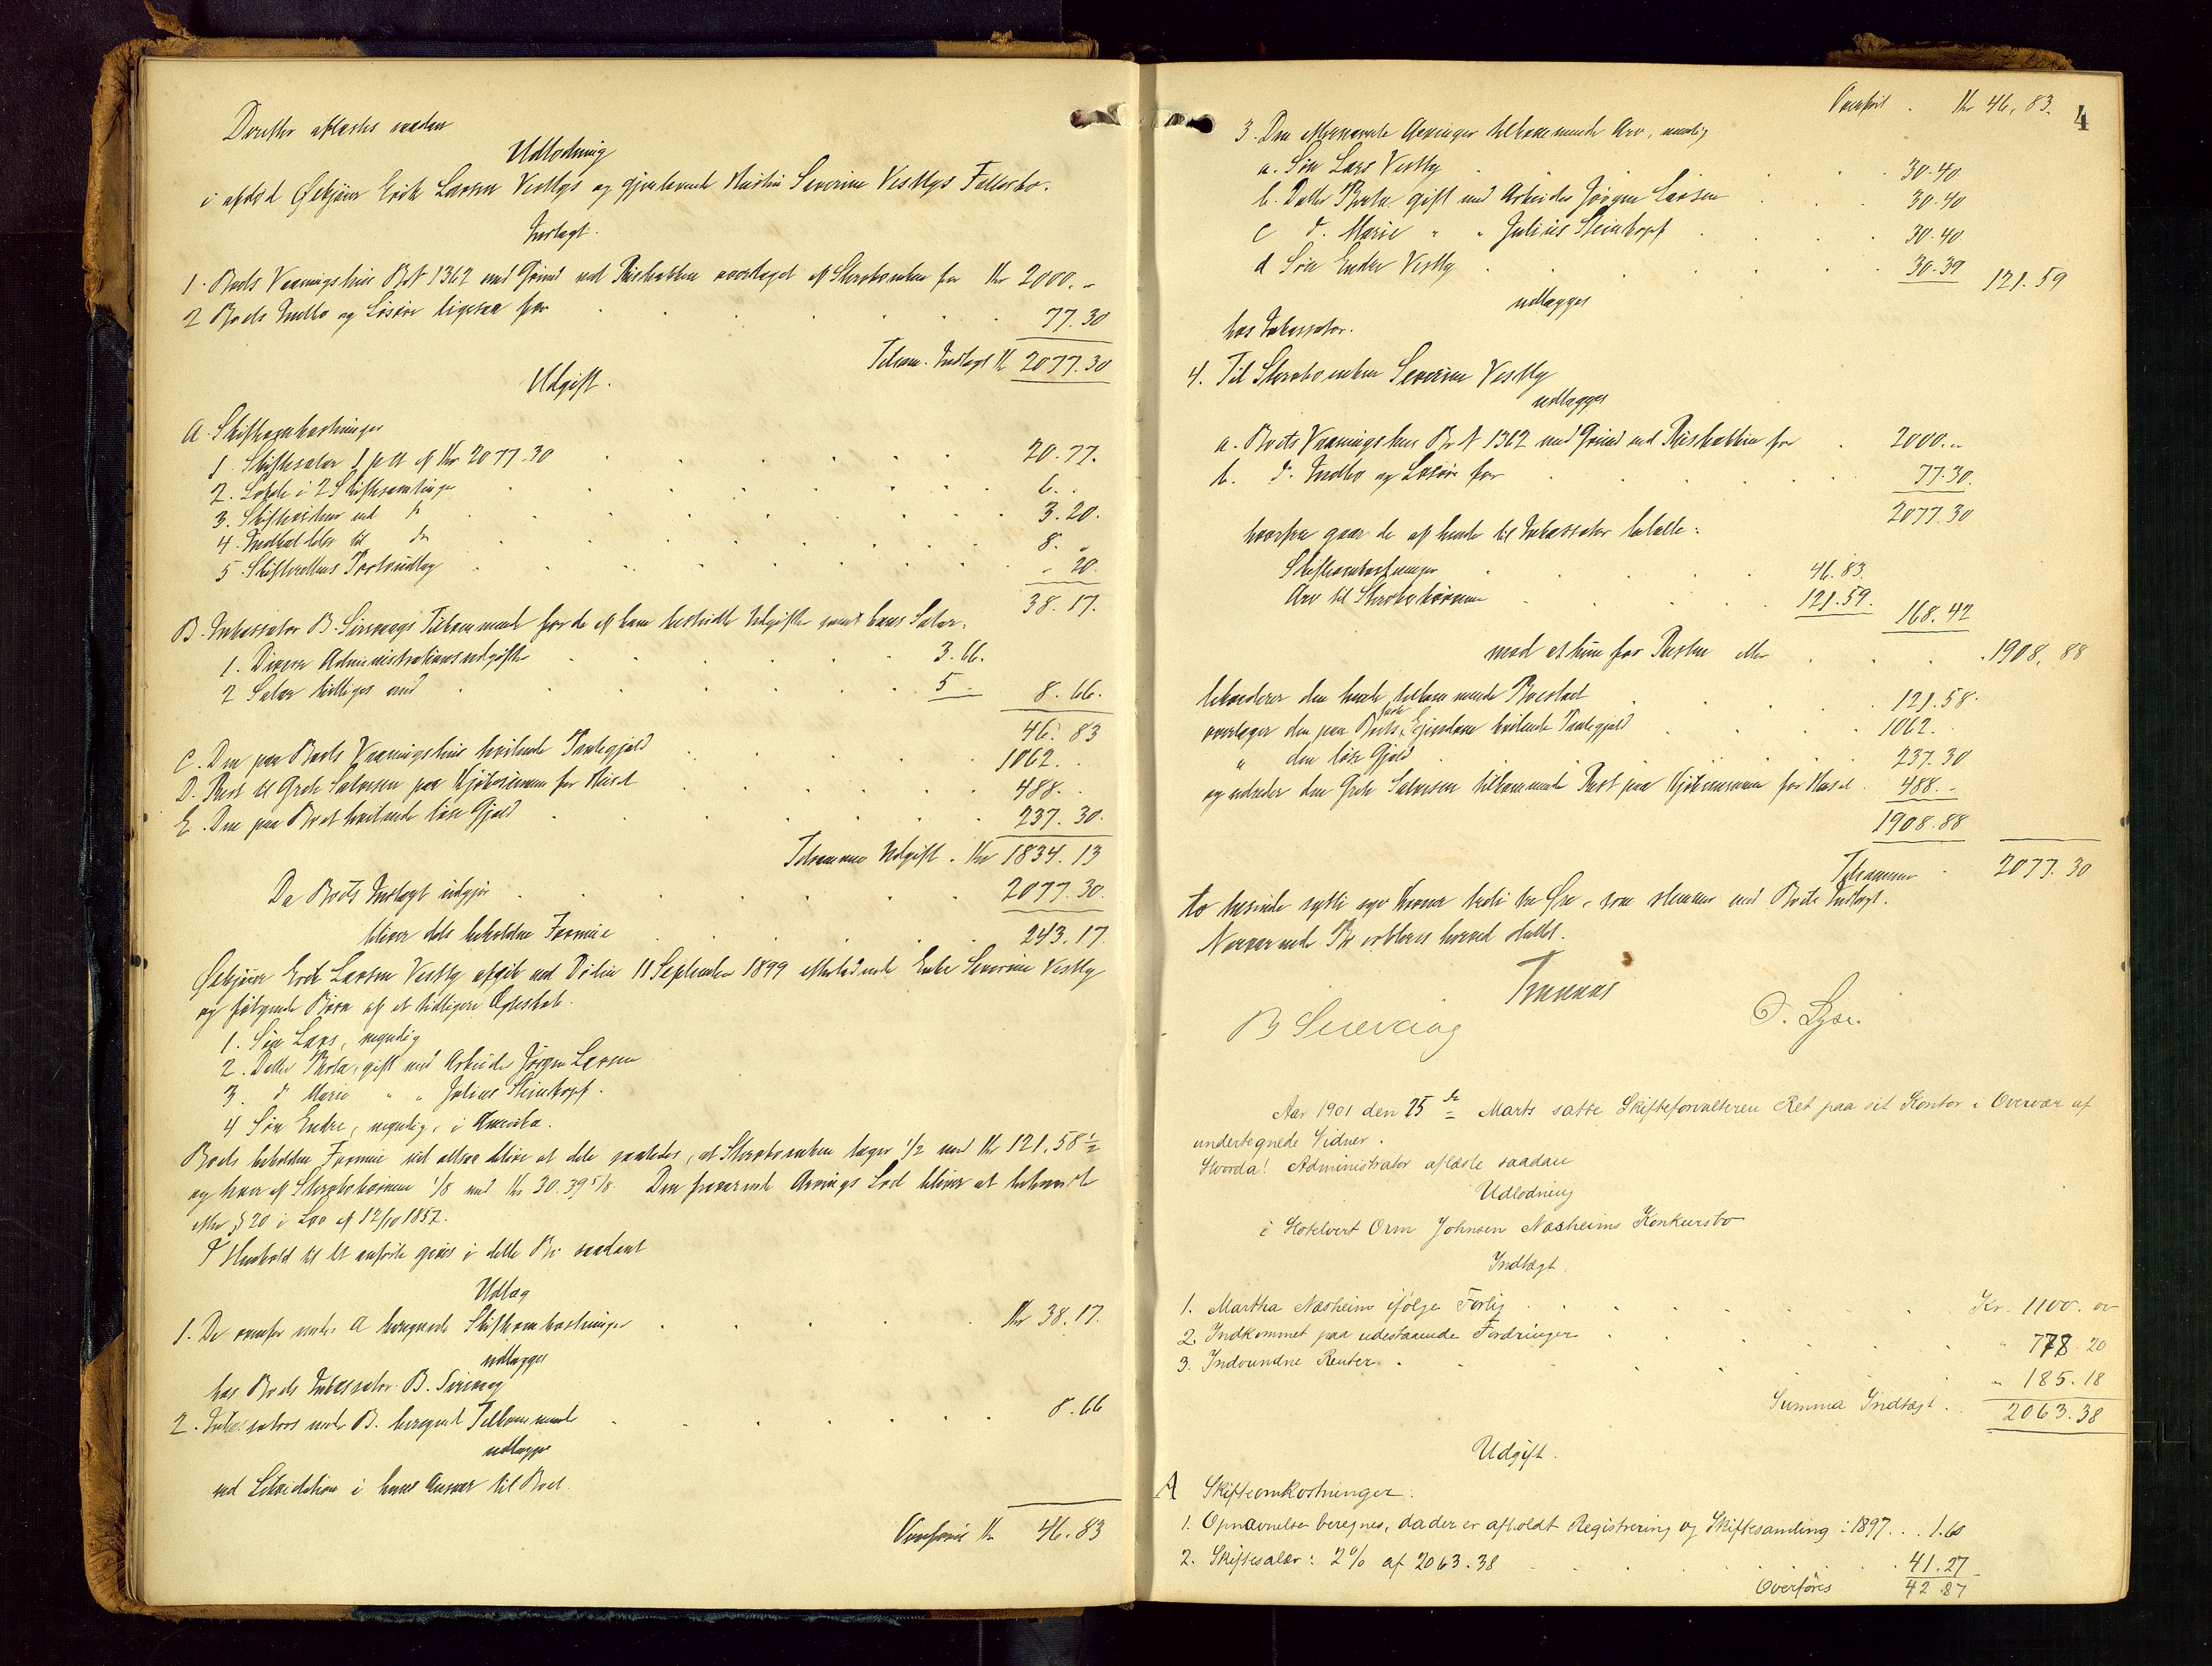 Derefter aflæstes saadan
Udlodning
i afdød Ølkjører Erik Larsen Vestlys og gjenlevende Hustru Severine Vestlys Fællesbo.
Indtægt.
1. Boets Vaaningshus Br. № 1362 med Grund ved overtaget af Stervboenken for Kr 2000. -
2 Boets Indbo og Løsøre ligesaa for 77.30
Tilsam. Indtægt Kr 2077.30
Udgift.
A. Skifteomkostninger
1. Skiftesalær 1 pCt af Kr. 2077.30 20.77.
2. i 2 Skiftesamlinger 6. -
3. ved 3.20.
4. Indkaldelse til do 8. -
5. Skifterettens Portoudlæg - 20.
38.17.
B. Inkassator B. Sirevaags Tilkommende for de af ham bestridte Udgifter samt hans Salær.
1. Diverse Administrationsudgifter 3.66.
2 Salær billiges med 5 - 8.66.
46.83
C. Den paa Boets Vaaningshus hvilende Pantegjæld 1062. -
D. Rest til Grete Salvesen paa Kjøbesummen for Huset 488. -
E. Den paa Boet hvilende løse Gjæld 237.30.
Tilsammen Udgift. Kr 1834.13
Da Boets Indtægt udgjør 2077.30.
bliver dets beholdne Formue 243.17.
Ølkjører Erik Larsen Vestly afgik ved Døden 18 September 1899 efterladende Enke Severine Vestly
og følgende Børn af et tidligere Ægteskab.
1. Søn Lars, myndig
2. Datter Berta, gift med Arbeider Jørgen Larsen
3. do Marie " " Julius Steinkopf.
4 Søn Endre, myndig, i Amerika.
Boets beholdne Formue vil altsaa blive at dele saaledes, at Stervboenken tager 1/2 med Kr 121.58 1/2
og hver af Stervbobørnene 1/8 med Kr 30.39 5/8. Den fraværende Arvings Lod bliver at behandle
efter § 20 i Lov af 12/10 1857.
I Henhold til det anførte gjøres i dette Bo saadant
Udlæg
1. De ovenfor under A beregnede Skifteomkostninger Kr 38.17.
udlægges
hos Boets Inkassator B. Sirevaag
2. Inkassators under B. beregnede Tilkommende 8.66
udlægges
ved Likvidation i hans Ansvar til Boet.
Overføres Kr 46.83
Overført . Kr 46.83.
4
3. Den Arvinger tilkommende Arv, nemlig
a. Søn Lars Vestly 30.40
b. Datter Berta gift med Arbeider Jørgen Larsen 30.40
c do Marie " " Julius Steinkopf 30.40
d Søn Endre Vestly 30.39 121.59
udlægges
hos Inkassator.
4. Til Stervboenken Severine Vestly
udlægges
a. Boets Vaaningshus Br. № 1362 med Grund ved for 2000. -
b. do Indbo og Løsøre for 77.30.
2077.30
hvorfra gaar de af hende til Inkassator betalte:
Skifteomkostninger 46.83.
Arv til Stervbobørnene 121.59. 168.42
mod at hun for Resten eller 1908.88
beholder den hende tilkommende Boeslod 121.58.
overtager den paa Boets faste Eiendom hvilende Pantegjæld 1062. -
" den løse Gjæld 237.30
og udreder den Grete Salvesen tilkommende Rest paa Kjøbesummen for Huset 488. -
1908.88
Tilsammen 2077.30
to tusinde sytti syv Kroner tredive Øre, som stemmer med Boets Indtægt.
Nærværende Bo erklæres herved sluttet.
B Sirevaag
O. Lyse.
Aar 1901 den 25de Marts satte Skifteforvalteren Ret paa sit Kontor i Overvær af
undertegnede Vidner.
Hvorda! Administrator aflæste saadan
Udlodning
i Hotelvert Orm Johnsen Næsheims Konkursbo
Indtægt.
1. Martha Næsheim ifølge Forlig Kr. 1100.00
2. Indkommet paa udestaaende Fordringer " 778.20
3. Indvundne Renter " 185.18
Summa Indtægt. 2063.38
Udgift.
A Skifteomkostninger:
1. Opnævnelse beregnes, da der er afholdt Registrering og Skiftesamling i 1897. . 1.60
2. Skiftesalær: 2% af 2063.38 41.27
Overføres 42.87